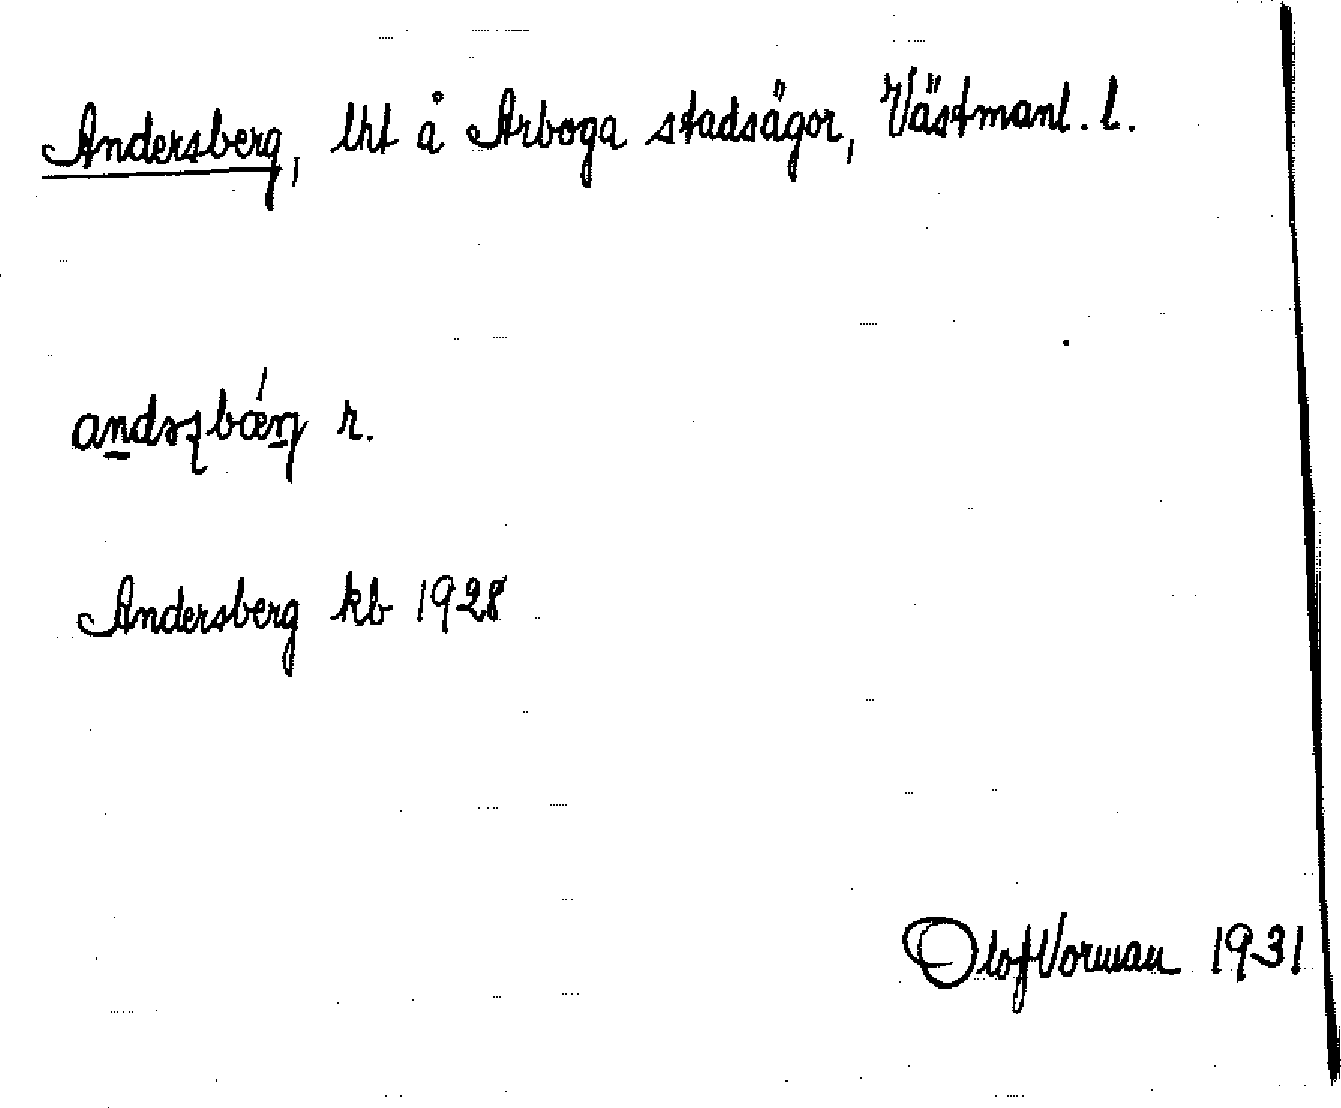 Andersberg, lht å Arboga stadsägor, Västmanl. l.
r.
Andersberg kb 1928
Olof Vorman 1931